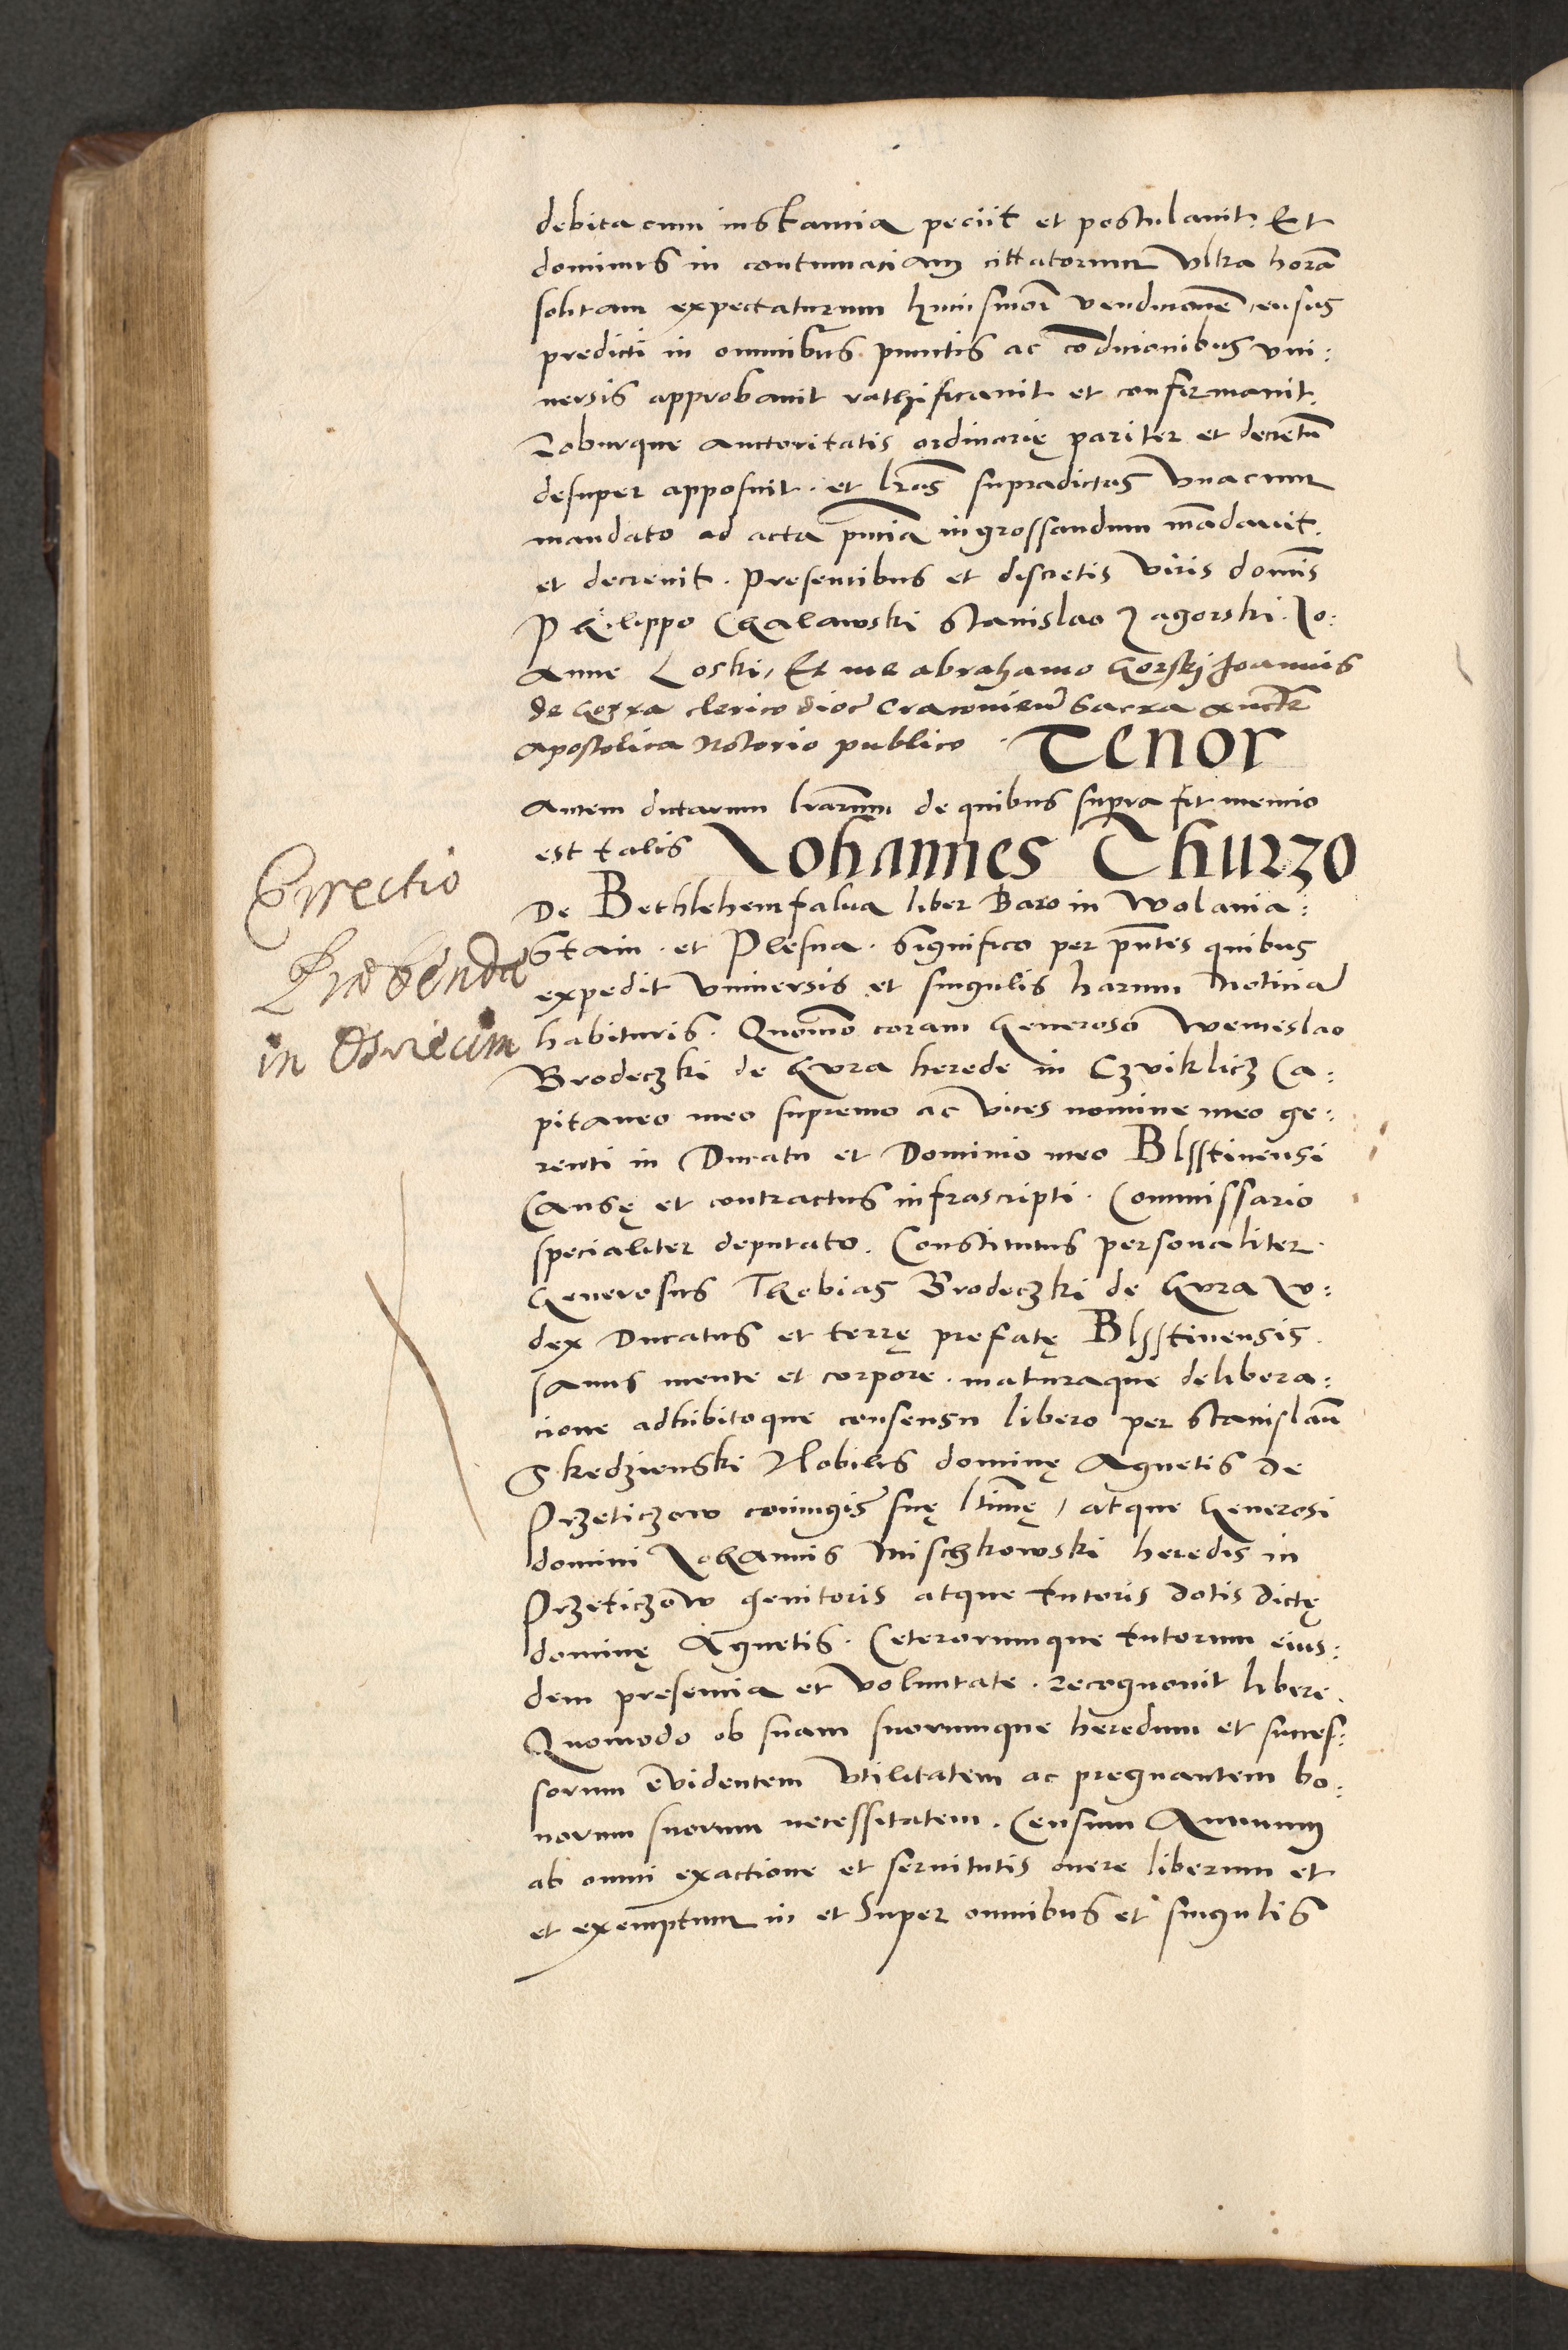 debita cum instantia peciit et postulauit. Et
dominus in contumaciam cittatorum vltra horã
solitam expectatorum huiusmoi vendicionẽ census
predicti in omnibus punctis ac cõdicionibus vni:
uersis approbauit rathificauit et confirmauit.
Roburque auctoritatis ordinarię pariter et decretũ
desuper apposuit. et lras̃ supradictas vnacum
mandato ad acta pñcia ingrossandum mãdauit.
et decreuit. Presentibus et discretis viris domĩs
Philippo Chalawski Stanislao Zagorski. Io:
anne Loski, Et me abrahamo Gorskj Joannis
de Gorra clerico dioc̃ Cracouieñ Sacra auctẽ
apostolica Notorio publico. Tenor
autem dictarum lrarũm de quibus supra fit mencio
est talis Iohannes Thurzo
Errectio
Præbendæ
in Osviecim
De Bethlehemfalua liber Baro in Wolania:
Stain. et Plesna. Significo per pñtes quibus
expedit vniuersis et singulis harum Noticiã
habituris. Quomõ coram Generoso Wenceslao
Brodeczki de Gvra herede in Czviklicz Ca:
pitaneo meo supremo ac vices nomine meo ge:
renti in Ducatu et Dominio meo Blsstinensi
Causę et contractus infrascripti. Commissario
specialiter deputato. Constitutus personaliter.
Generosus Thobias Brodeczki de Gvra Iv:
dex Ducatus et terrę prefatę Blsstinensis.
sanus mente et corpore. maturaque delibera:
cione adhibitoque consensu libero per Stanislaũ
Skedzienski Nobilis dominę Agnetis de
Przeticzow coniugis suę ltimę, atque Generosi
domini Iohannis Mischkowski heredis in
Przeticzow genitoris atque tutoris dotis dictę
dominę Agnetis. Ceterorumque tutorum eius:
dem presencia et voluntate. recognouit libere.
Quomodo ob suam suorumque heredum et succes:
sorum evidentem vtilitatem ac pregnantem bo:
norum suorum necessitatem. Censum Annuum
ab omni exactione et seruitutis onere liberum et
et exemptum in et super omnibus et singulis